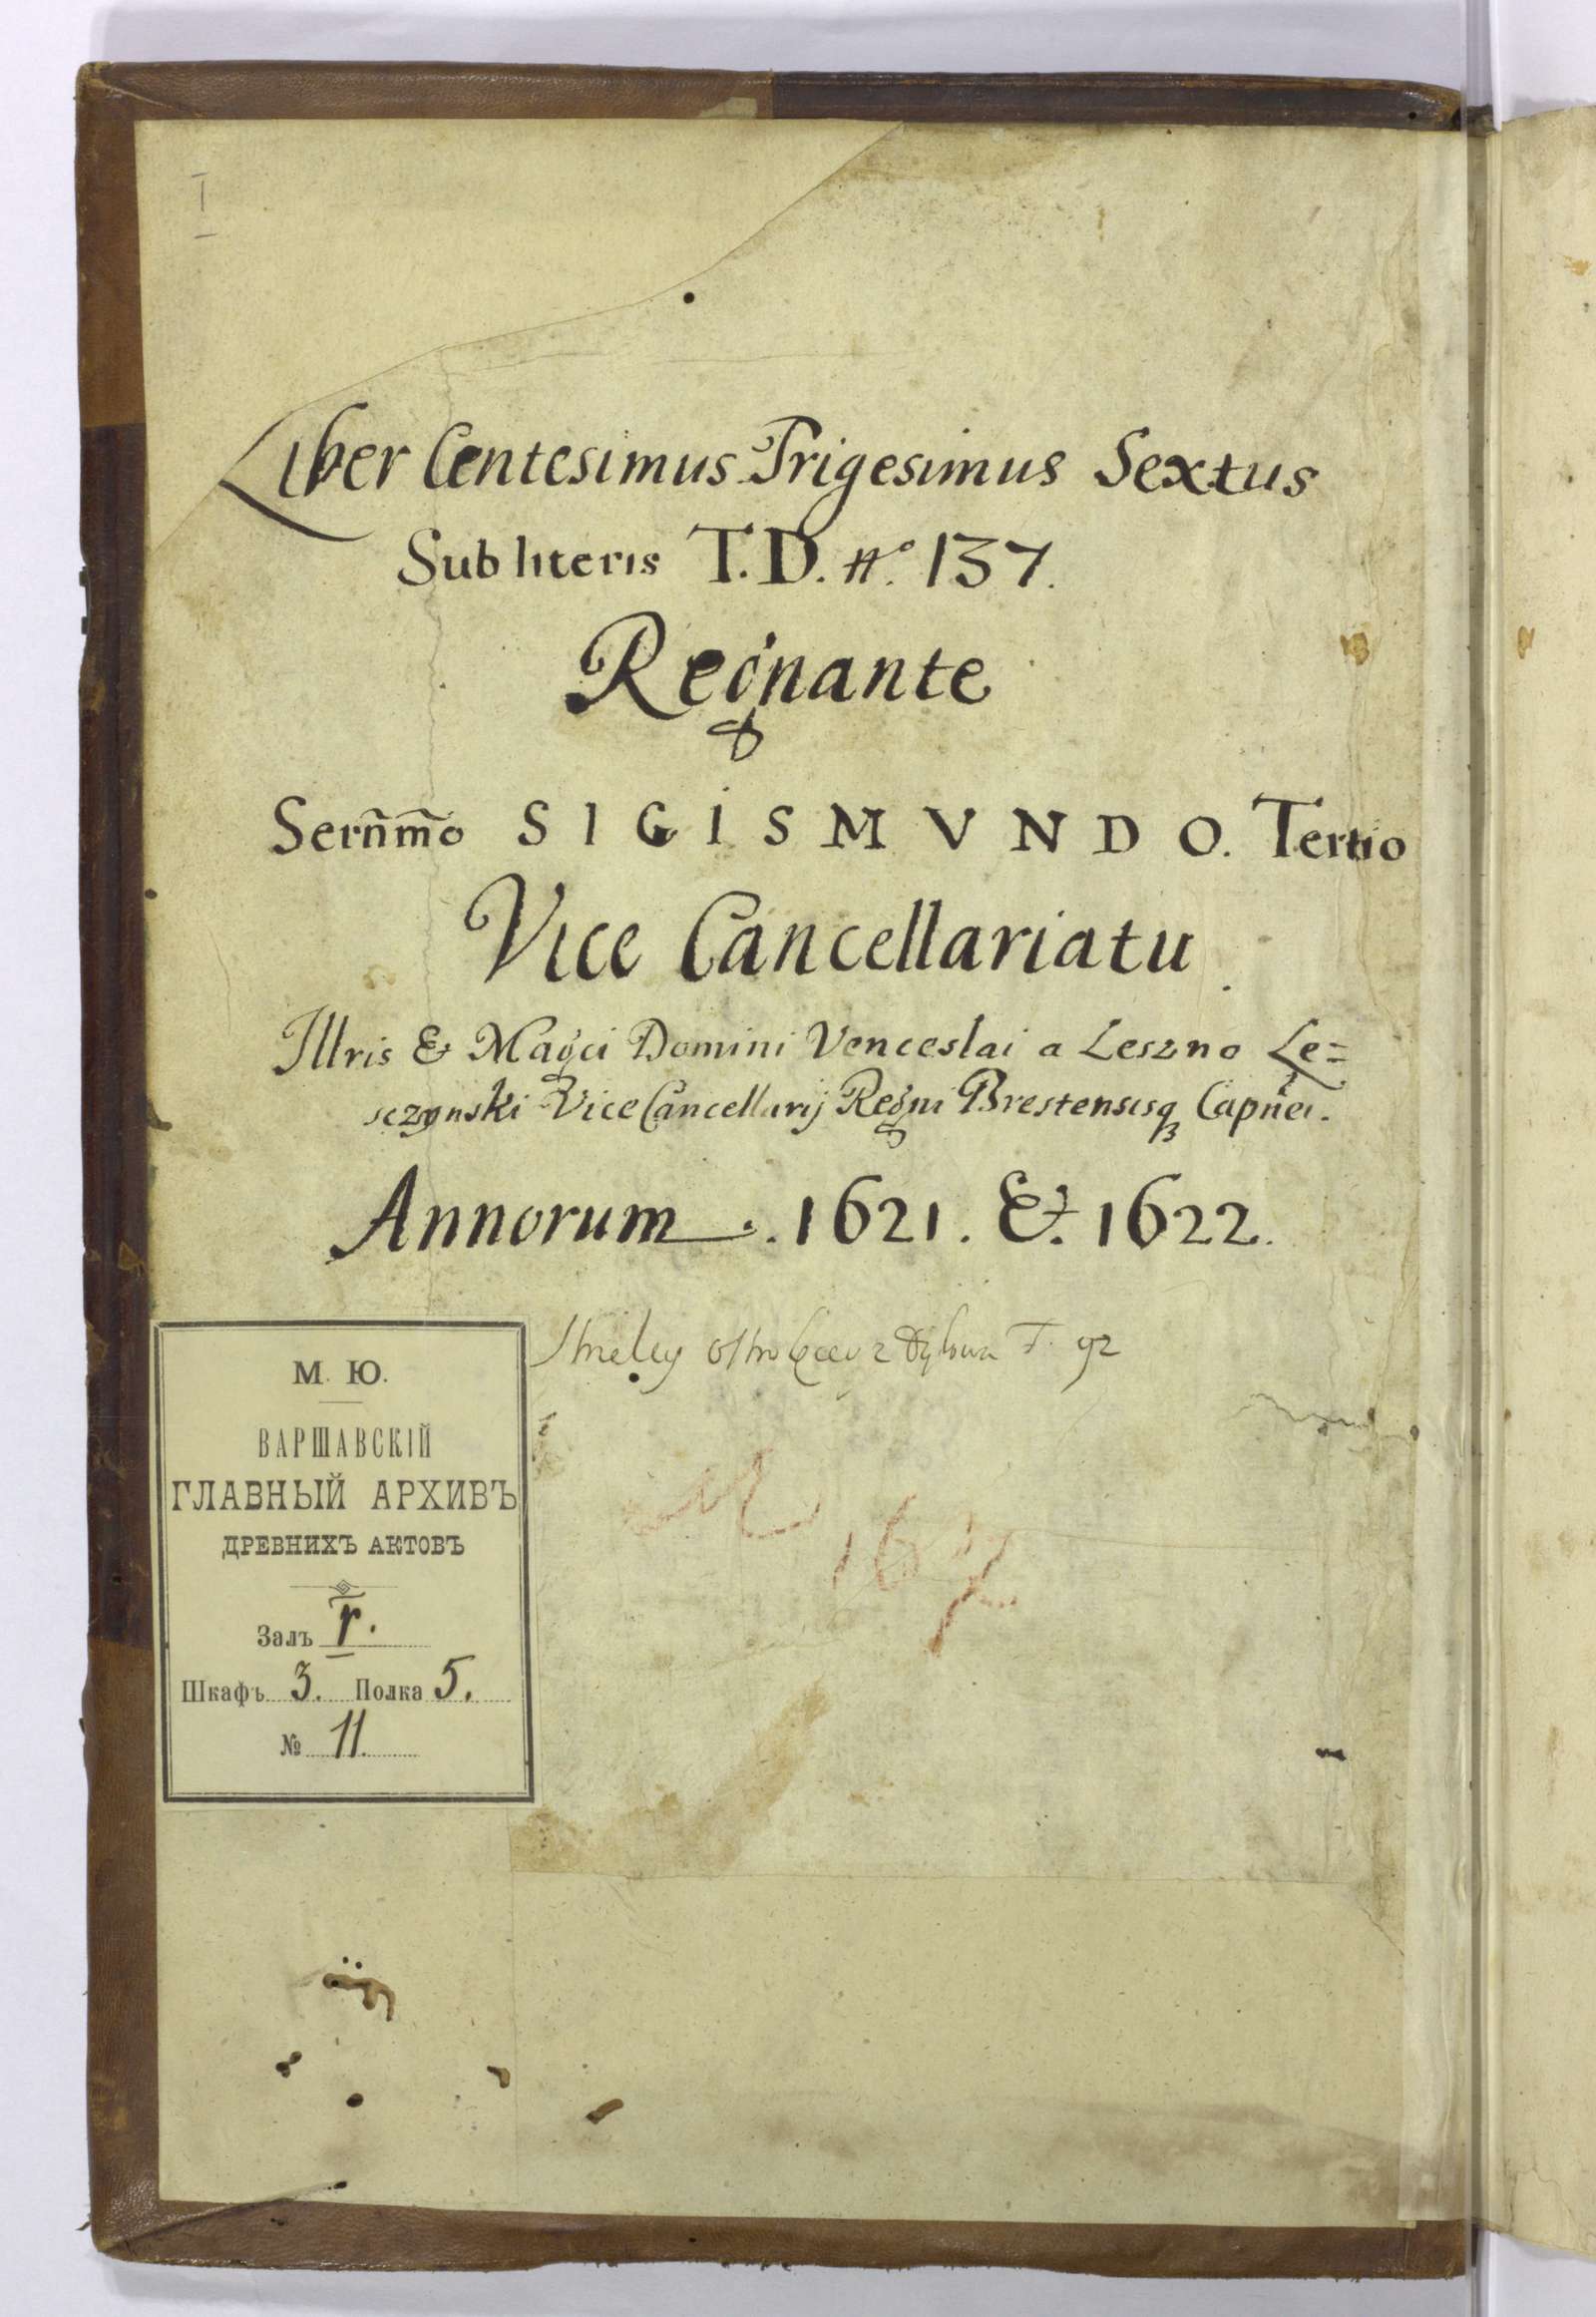 I
Liber Centesimus Trigesimus Sextus
Sub literis T.D. № 137.
Regnante
Sern̄m̄o SIGISMVNDO. Tertio
Vice Cancellariatu
Illris & Magci Domini Venceslai a Leszno Le=
sczynski Vice Cancellarij Regni Brestensisq₃ Capn̄ei.
Annorum. 1621. &. 1622.
92
М. Ю.
ВАРШАВСКІЙ
ГЛАВНЫЙ АРХИВЪ
ДРЕВНИХЪ АКТОВЪ
Залъ I.
Шкафъ 3. Полка 5.
№ 11.